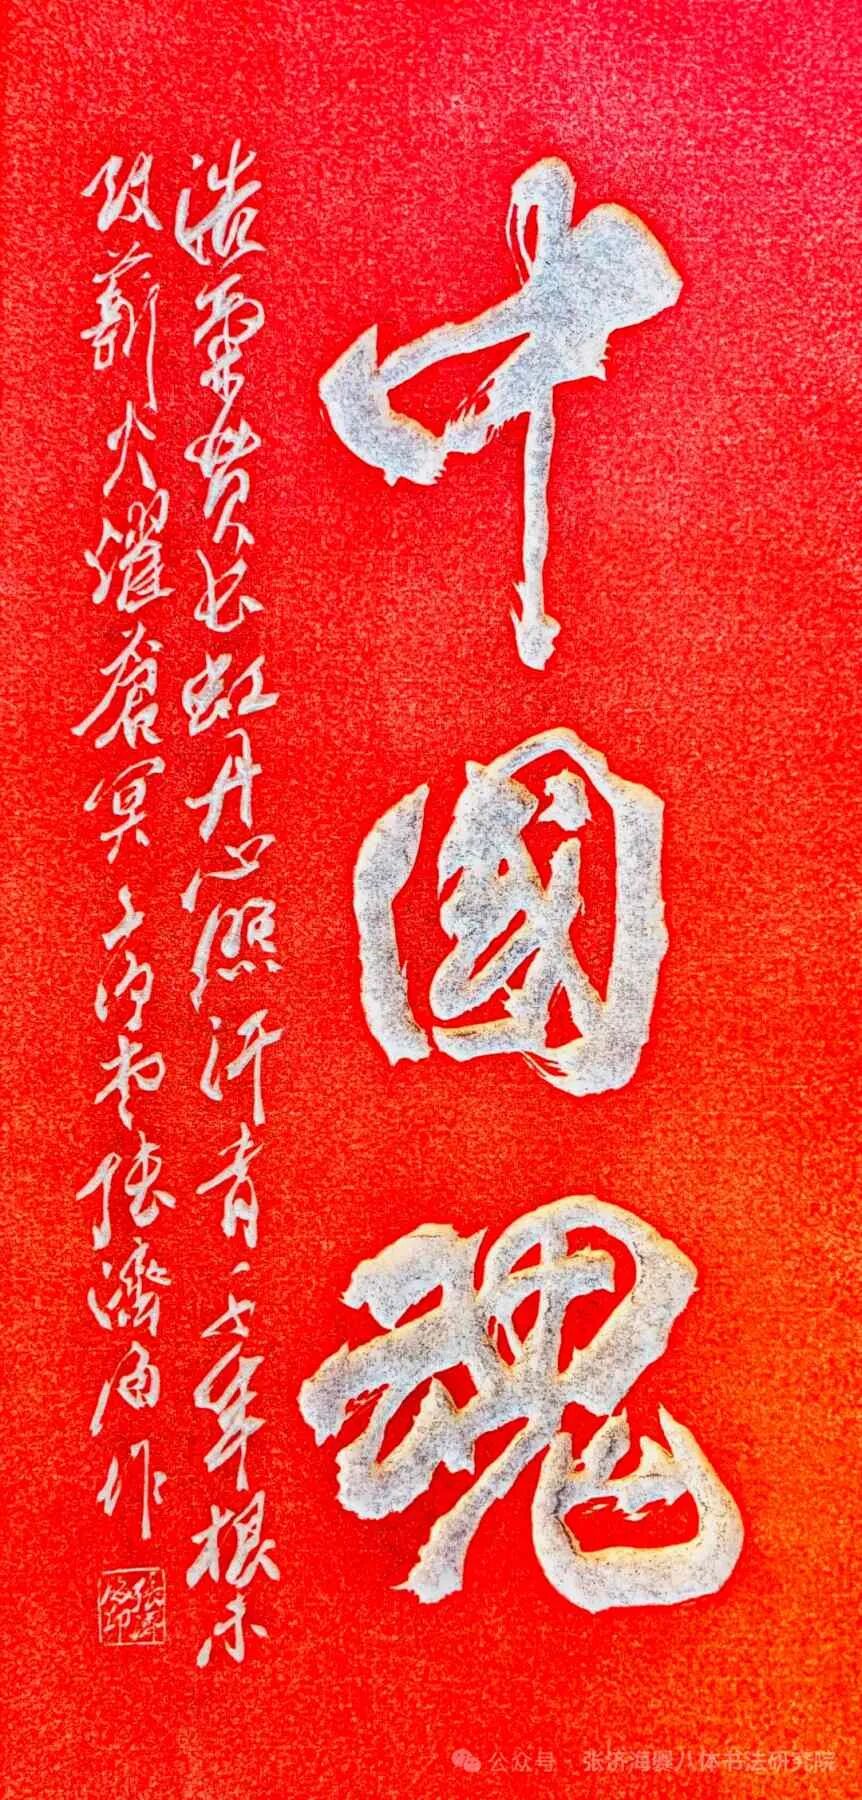 中國魂
浩氣貫长虹丹心照汗青千年根未
改薪火耀蒼冥張濟海作
張濟海印
公众号 · 张济海爨八体书法研究院